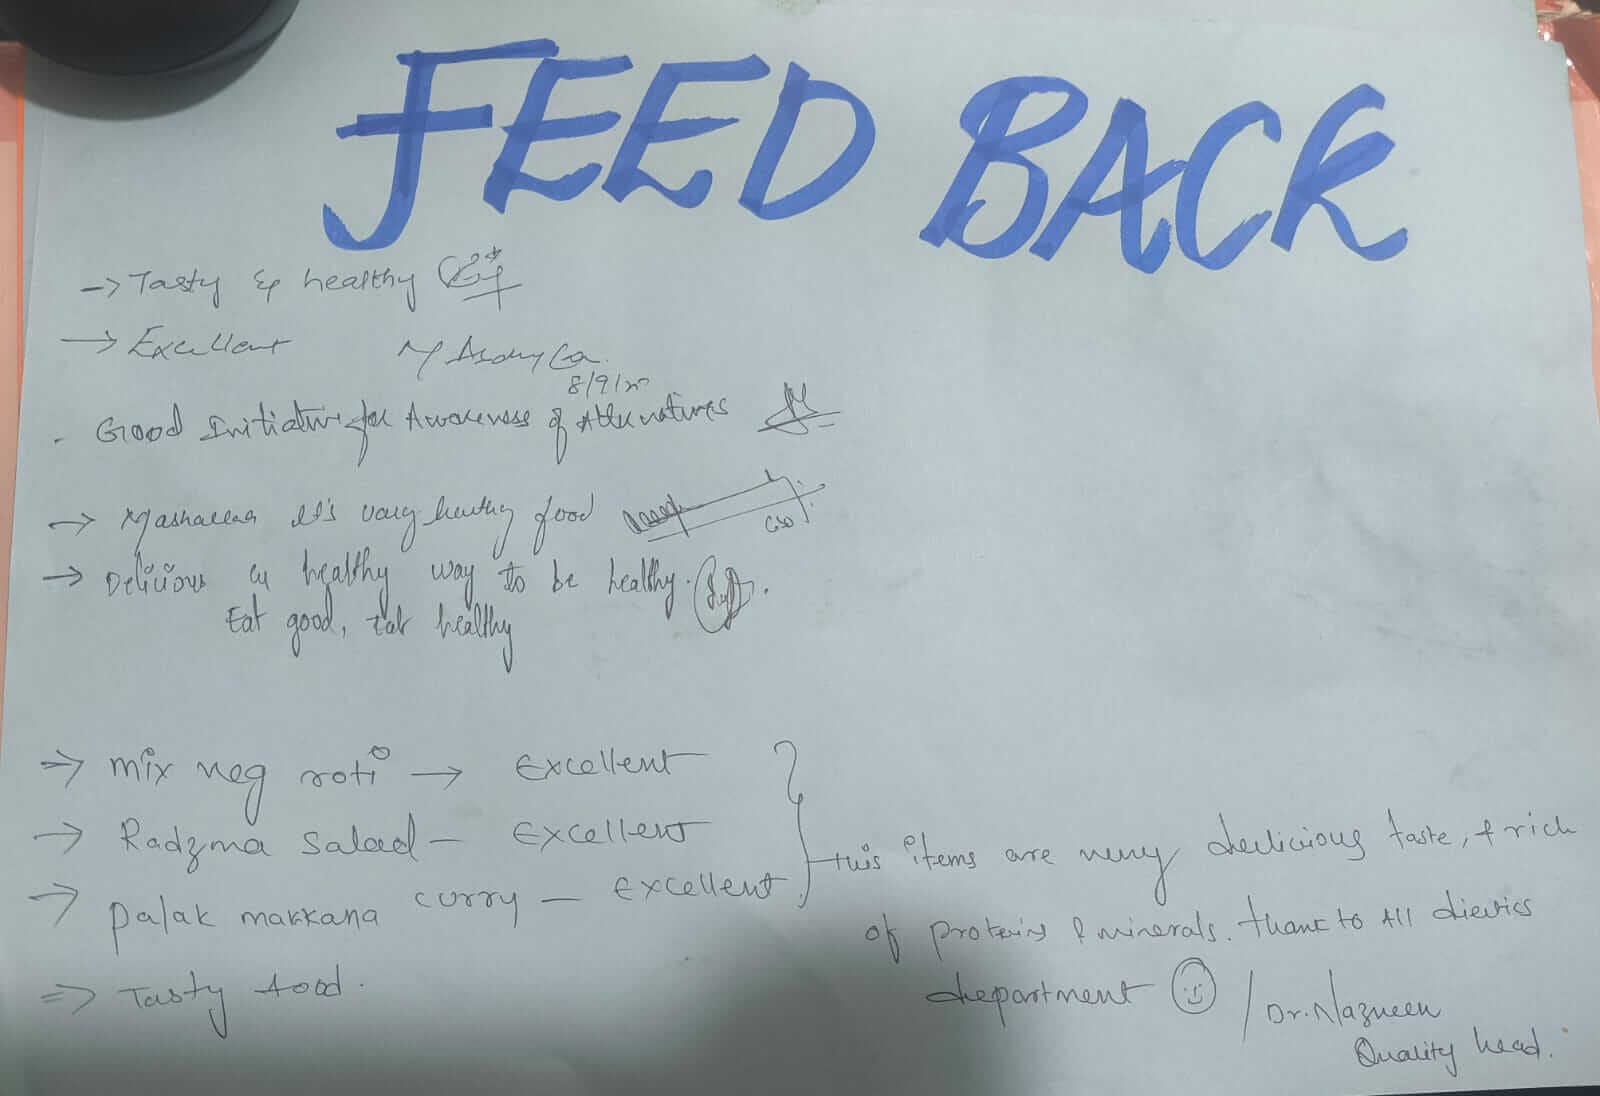 FEED BACK
→ Tasty & healthy
→ Excellent
8/9/20
- Good Initiative for Awareness of Alternatives
→ Mashallah it's very healthy food
→ Delicious & healthy way to be healthy.
Eat good, eat healthy
→ mix veg roti → Excellent
→ Radzma salad - Excellent
→ palak makkana curry - Excellent
⇒ Tasty food.
this items are very delicious taste, & rich
of proteins & minerals. thank to All
department ☺ / Dr. Nazneen
Quality head.